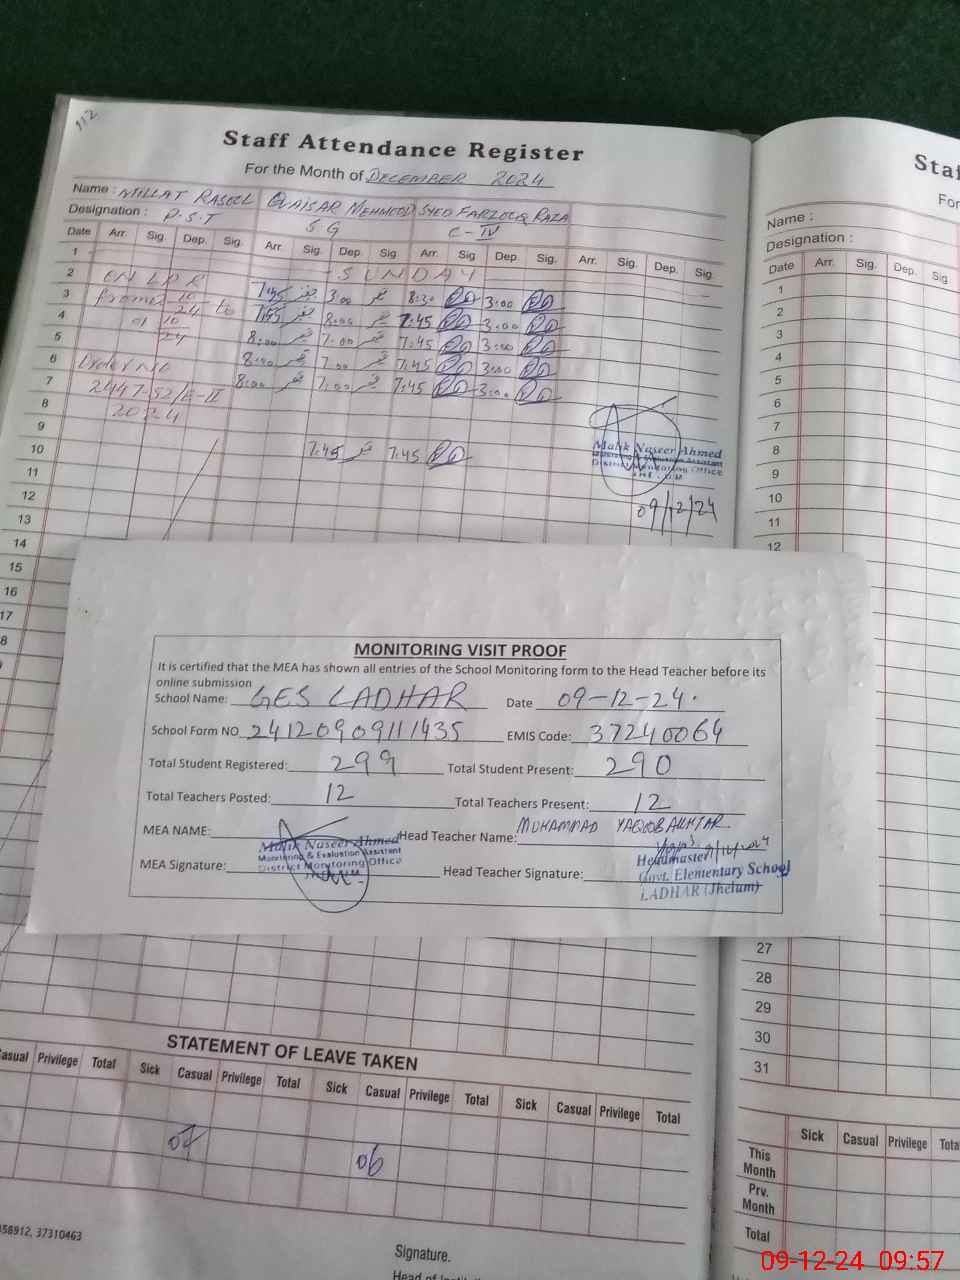 112
Staff Attendance Register
For the Month of DECEMBER 2024
Name : MILLAT RASOOL QAISAR MEHMOOD SYED FAROOQ RAZA
Designation : P.S.T S.G C-IV
Date Arr. Sig. Dep. Sig. Arr. Sig. Dep. Sig. Arr. Sig Dep. Sig. Arr. Sig. Dep. Sig.
1 SUNDAY
2 ON LPR 7:45 3:00 8:30 3:00
3 from 10 24 to 7:45 8:00 7:45 3:00
4 01 10 24 8:00 7:00 7:45 3:00
5 8:00 7:00 7:45 3:00
6 Order No 8:00 7:00 7:45 3:00
7 2447-52/E-II
8 2024
9 7:45 7:45
10
11
12
13
14
15
16
17
Malik Naseer Ahmed
Monitoring & Evaluation Assistant
District Monitoring Office
09/12/24
MONITORING VISIT PROOF
It is certified that the MEA has shown all entries of the School Monitoring form to the Head Teacher before its
online submission
School Name: GES LADHAR Date 09-12-24.
School Form NO 24120909111435 EMIS Code: 37240064
Total Student Registered: 299 Total Student Present: 290
Total Teachers Posted: 12 Total Teachers Present: 12
MEA NAME: Head Teacher Name: MUHAMMAD YAQOOB AKHTAR
Malik Naseer Ahmed
Monitoring & Evaluation Assistant
District Monitoring Office
MEA Signature: Head Teacher Signature:
Headmaster
Govt. Elementary School
LADHAR (Jhelum)
STATEMENT OF LEAVE TAKEN
Casual Privilege Total Sick Casual Privilege Total Sick Casual Privilege Total Sick Casual Privilege Total
07 06
58912, 37310463
Signature.
Head of
Staf
For
Name :
Designation :
Date Arr. Sig. Dep. Sig.
1
2
3
4
5
6
7
8
9
10
11
12
27
28
29
30
31
Sick Casual Privilege Tota
This Month
Prv. Month
Total
09-12-24 09:57